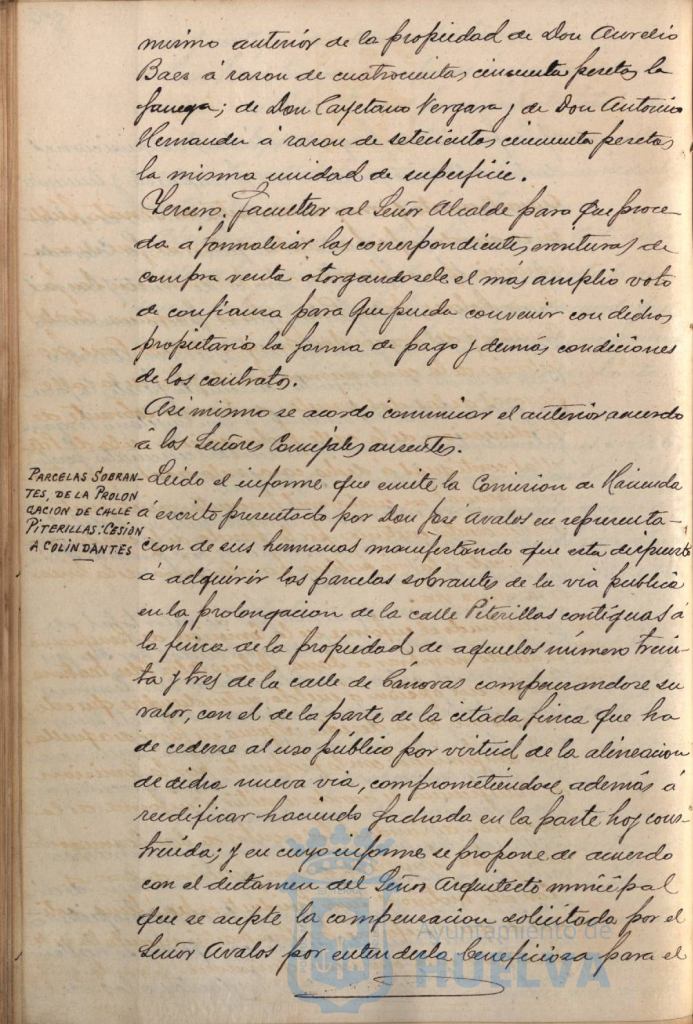 mismo anterior de la propiedad de Don Aurelio
Baez á razon de cuatrocientas cincuenta pesetas la
fanega; de Don Cayetano Vergara y de Don Antonio
Hernandez á razon de setecientas cincuenta pesetas
la misma unidad de superficie.
Tercero. Facultar al Señor Alcalde para que proce-
da á formalizar las correspondientes escrituras de
compra venta otorgandosele el más amplio voto
de confianza para que pueda convenir con dichos
propietarios la forma de pago y demás condiciones
de los contratos.
Asi mismo se acordó comunicar el anterior acuerdo
á los Señores Concejales ausentes.
PARCELAS SOBRAN-
TES, DE LA PROLON
GACION DE CALLE
PITERILLAS: CESION
A COLINDANTES
Leido el informe que emite la Comision de Hacienda
á escrito presentado por Don José Avalos en representa-
cion de sus hermanas manifestando que esta dispuesto
á adquirir las parcelas sobrantes de la via publica
en la prolongacion de la calle Piterillas contiguas á
la finca de la propiedad de aquellos número trein-
ta y tres de la calle de Cánovas compensandose su
valor, con el de la parte de la citada finca que ha
de cederse al uso público por virtud de la alineacion
de dicha nueva via, comprometiendose además á
reedificar haciendo fachada en la parte hoy cons-
truida; y en cuyo informe se propone de acuerdo
con el dictamen del Señor Arquitecto municipal
que se acepte la compensacion solicitada por el
Señor Avalos por entenderla beneficiosa para el
Ayuntamiento de
HUELVA